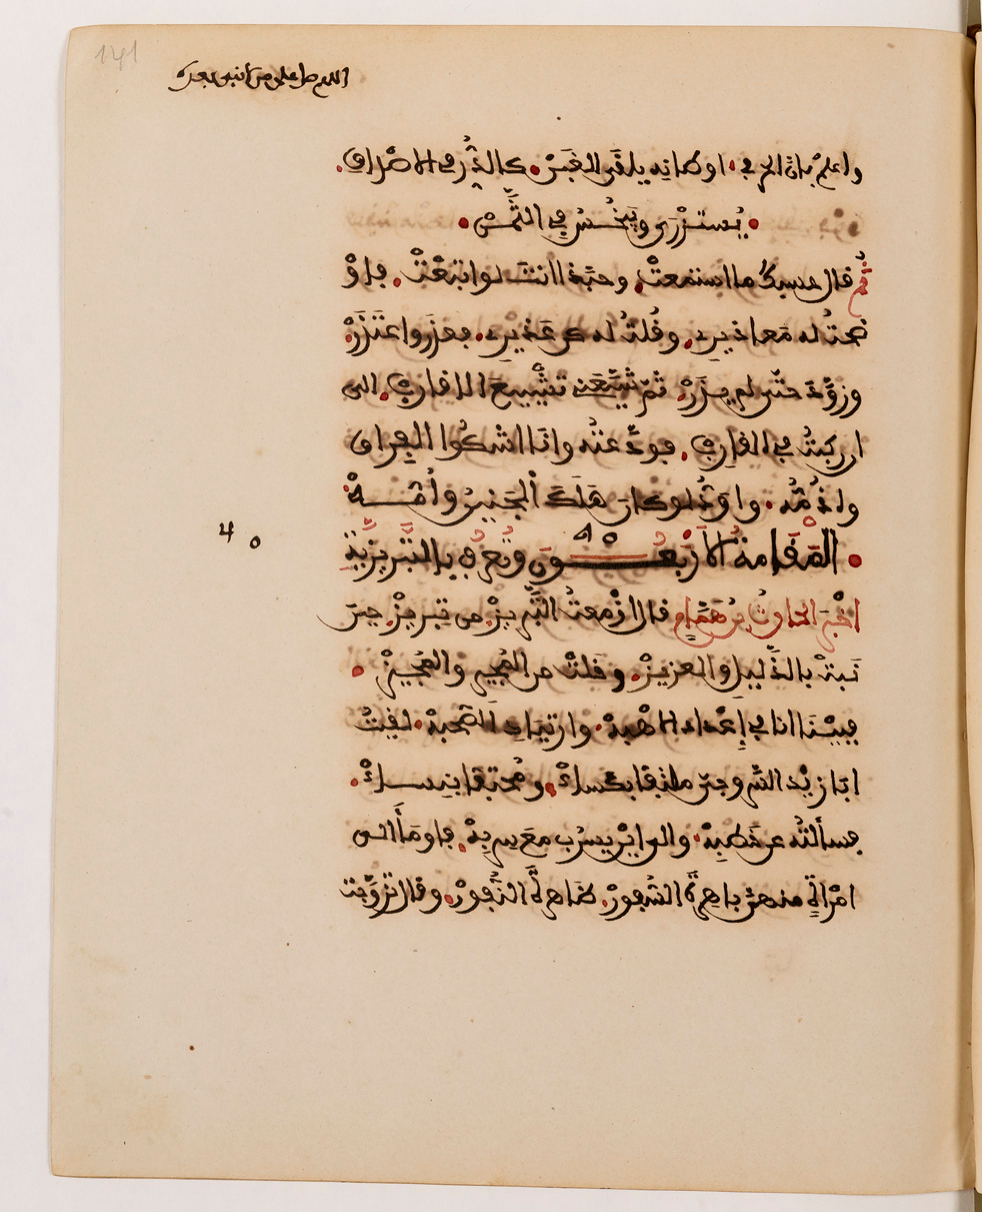 141
اللهم صل على من لا نبي بعده
واعلم بان الحر في اوطانه يلقى الغبن كالدر في الاصداف
يستزرى ويبخس في الثمن
ثم قال حسبك ما استمعت وحبذا انت لو اتبعت فاو
ضحت له معاذيري وقلت له كن عذيري فعذر واعتذر
وزود حتى لم يذر ثم شيعني تشييع الاقارب الى
ان ركبت في القارب فودعته وانا اشكوا الفراق
واذمه واود لو كان هلك الجنين وامه
المقامة الاربعون وتعرف بالتبريزية
اخبر الحارث بن همام قال ازمعت التبريز من تبريز حين
نبت بالذليل والعزيز وخلت من المجير والمجيز
فبينا انا في اعداد الاهبة وارتياد الصحبة لقيت
ابا زيد السروجي ملتفا بكساء ومحتفا بنساء
فسألته عن خطبه والى اين يسرب مع سربه فاومأ الى
امراة منهن باهرة السفور ظاهرة النفور وقال تزوجت
40